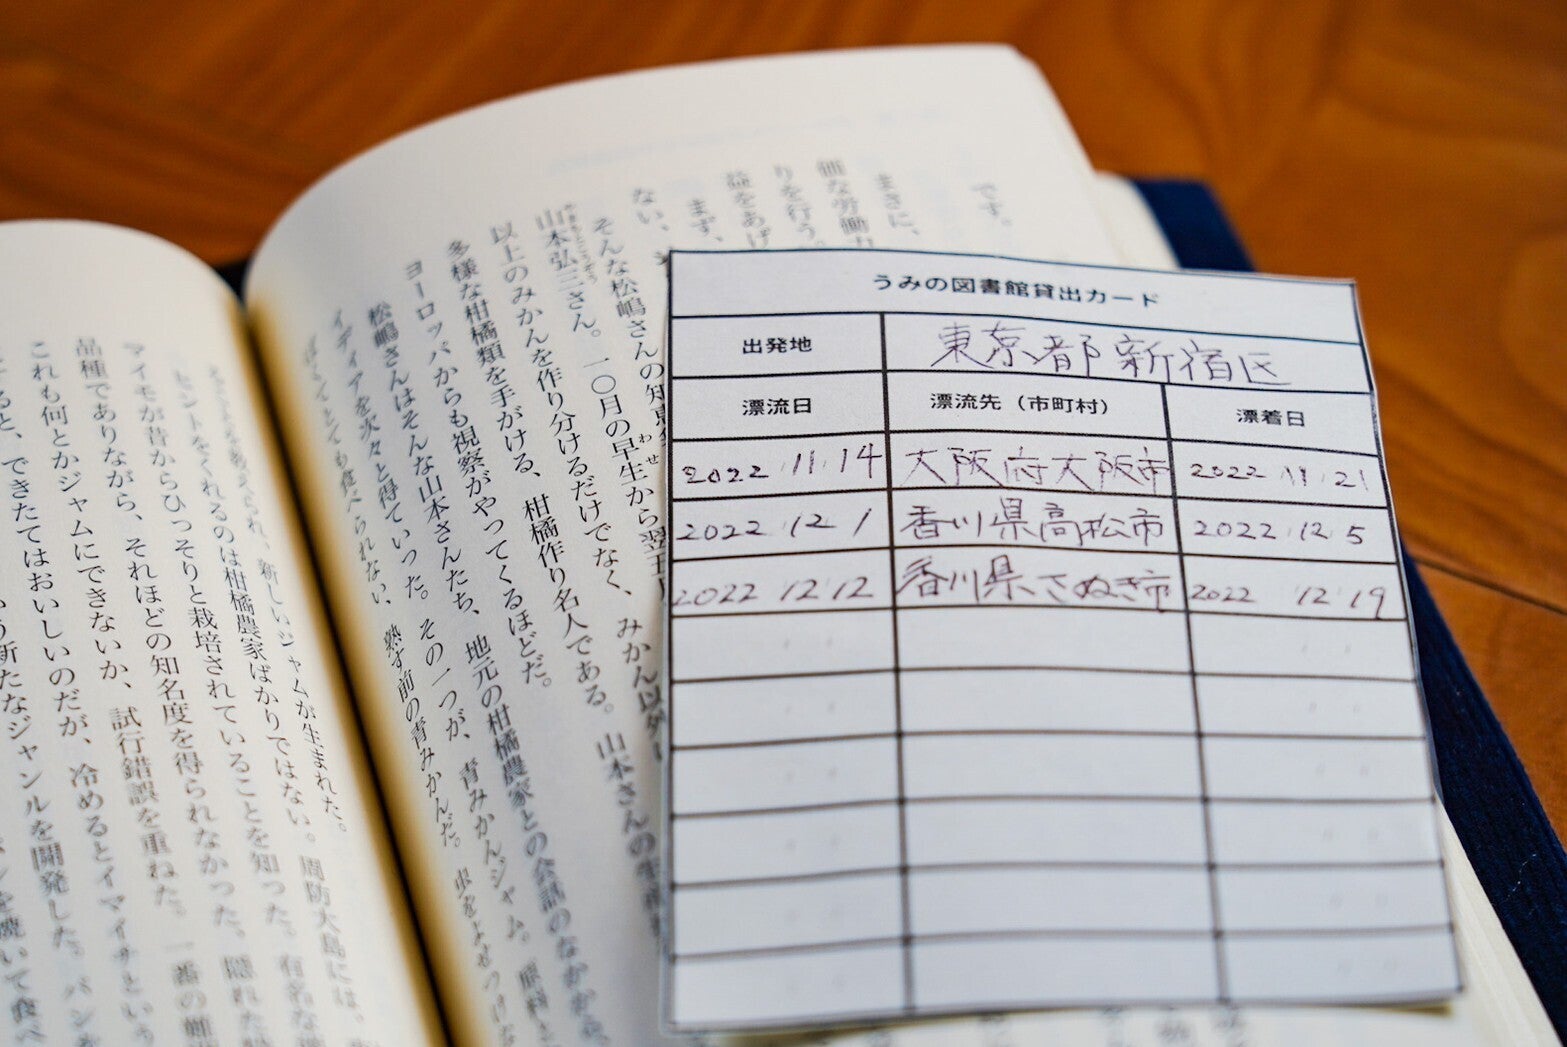 うみの図書館貸出カード
出発地 東京都新宿区
漂流日 漂流先（市町村） 漂着日
2022 11 14 大阪府大阪市 2022 11 21
2022 12 1 香川県高松市 2022 12 5
2022 12 12 香川県さぬき市 2022 12 19
です。
まさに、
価な労働力
りを行う。
益をあげ
まず、
ない、
そんな松嶋さんの知恵
山本弘三さん。一〇月の早生から翌五
以上のみかんを作り分けるだけでなく、みかん以外
多様な柑橘類を手がける、柑橘作り名人である。山本さんの
ヨーロッパからも視察がやってくるほどだ。
松嶋さんはそんな山本さんたち、地元の柑橘農家との会話のなかから
イディアを次々と得ていった。その一つが、青みかんジャム。原料
とても食べられない、熟す前の青みかんだ。虫をよせつけな
新しいジャムが生まれた。
ヒントをくれるのは柑橘農家ばかりではない。周防大島には、
マイモが昔からひっそりと栽培されていることを知った。有名な
品種でありながら、それほどの知名度を得られなかった、隠れた
これも何とかジャムにできないか、試行錯誤を重ねた。一番の難
すると、できたてはおいしいのだが、冷めるとイマイチという
新たなジャンルを開発した。パン
を焼いて食べ